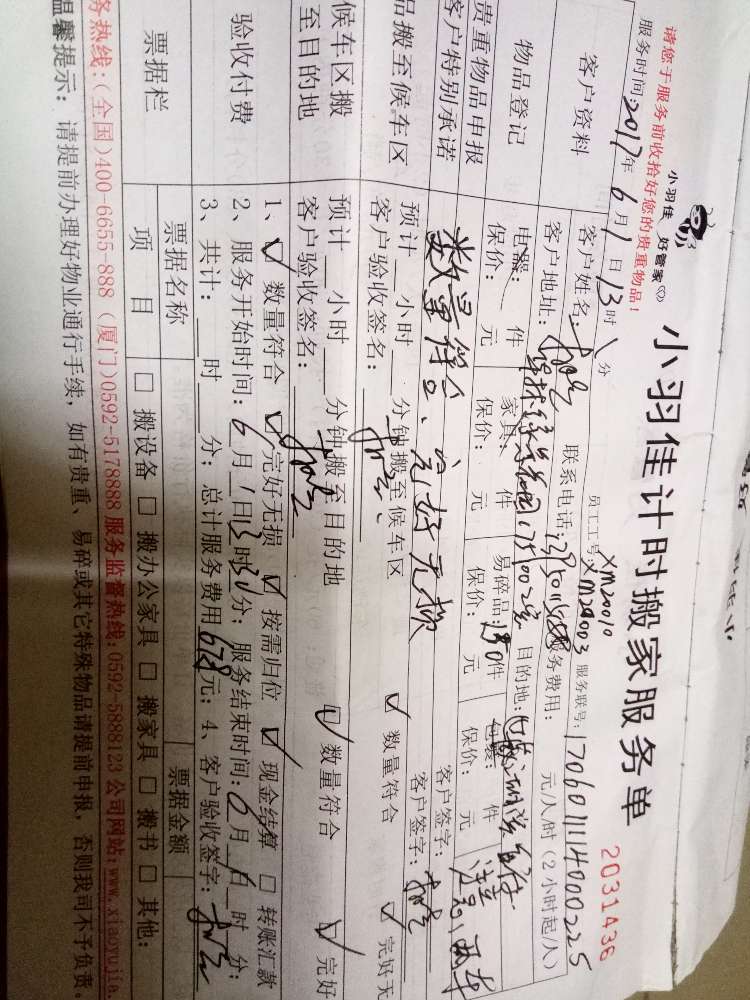 小羽佳 好管家
小羽佳计时搬家服务单
2031436
请您于服务前收拾好您的贵重物品！
员工工号： XM20010
XM20003
服务联号：1706011114000225
服务时间2017年6月1日13时 分
客户资料
客户姓名：
联系电话：
服务费用： 元/人/时(2小时起/人)
客户地址：
目的地：
物品登记
电器： 件
家具： 件
易碎品： 件
包裹： 件
贵重物品申报
保价： 元
保价： 元
保价： 元
保价： 元
客户特别承诺
数量符合、完好无损
客户签字：
品搬至候车区
预计 小时 分钟搬至候车区
数量符合
完好无
客户验收签名：
客户签字：
候车区搬
至目的地
预计 小时 分钟搬至目的地
数量符合
完好
客户验收签名：
验收付费
1、 数量符合 完好无损 按需归位 现金结算 □ 转账汇款
2、服务开始时间：6月1日13时30分；服务结束时间： 月 日 时 分；
3、共计： 时 分；总计服务费用678元；4、客户验收签字：
票据栏
票据名称
票据金额
项 目
□ 搬设备 □ 搬办公家具 □ 搬家具 □ 搬书 □ 其他:
务热线：(全国)400-6655-888 (厦门)0592-5178888 服务监督热线：0592-5888123 公司网站:www.xiaoyujia.
温馨提示： 请提前办理好物业通行手续，如有贵重、易碎或其它特殊物品请提前申报，否则我司不予负责。